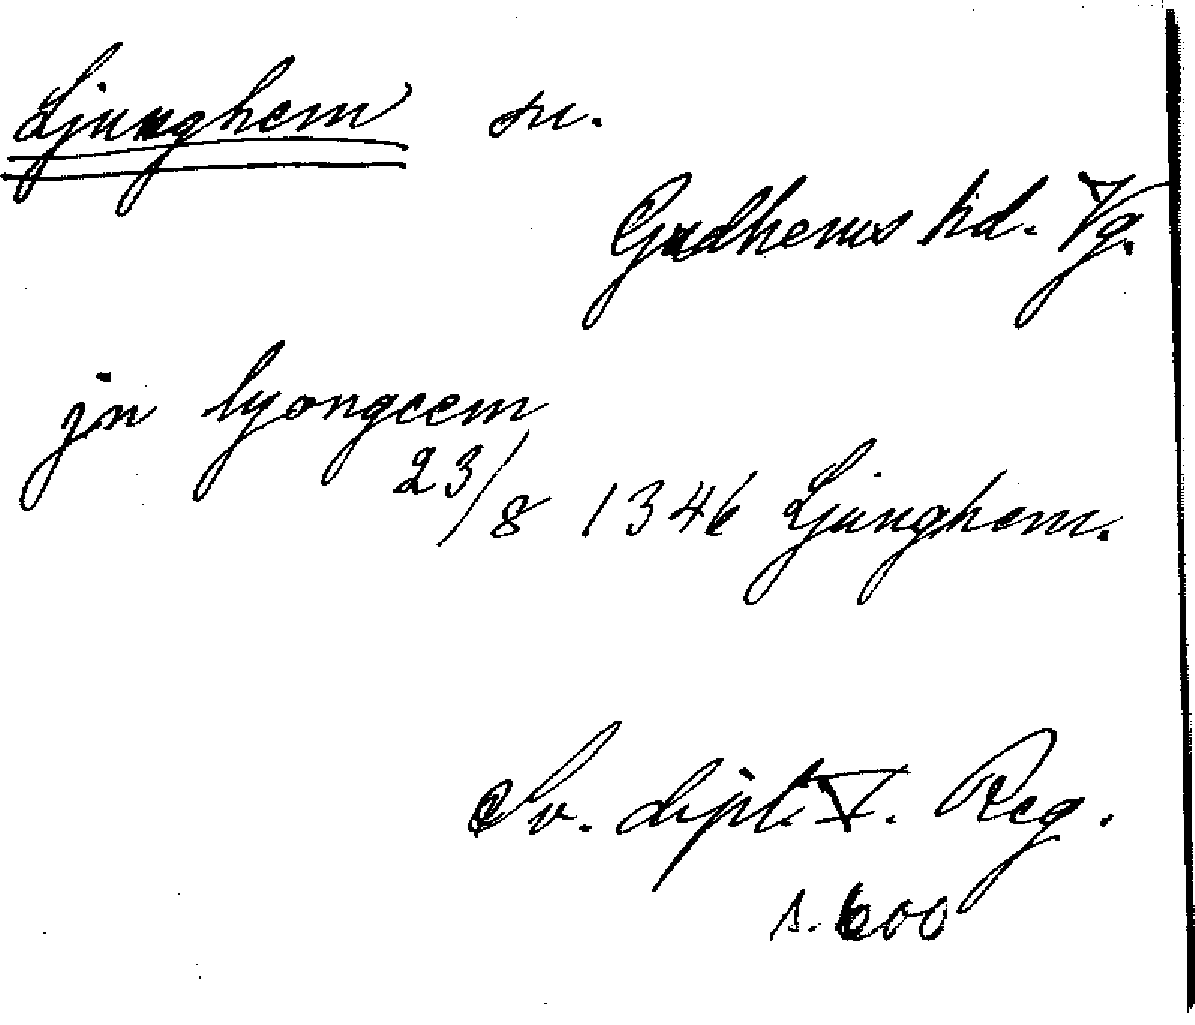 Ljunghem sn.
Gudhems hd. Vg.
jn lyongeem
23/8 1346 Ljunghem.
Sv. dipl. V. Reg.
s. 600